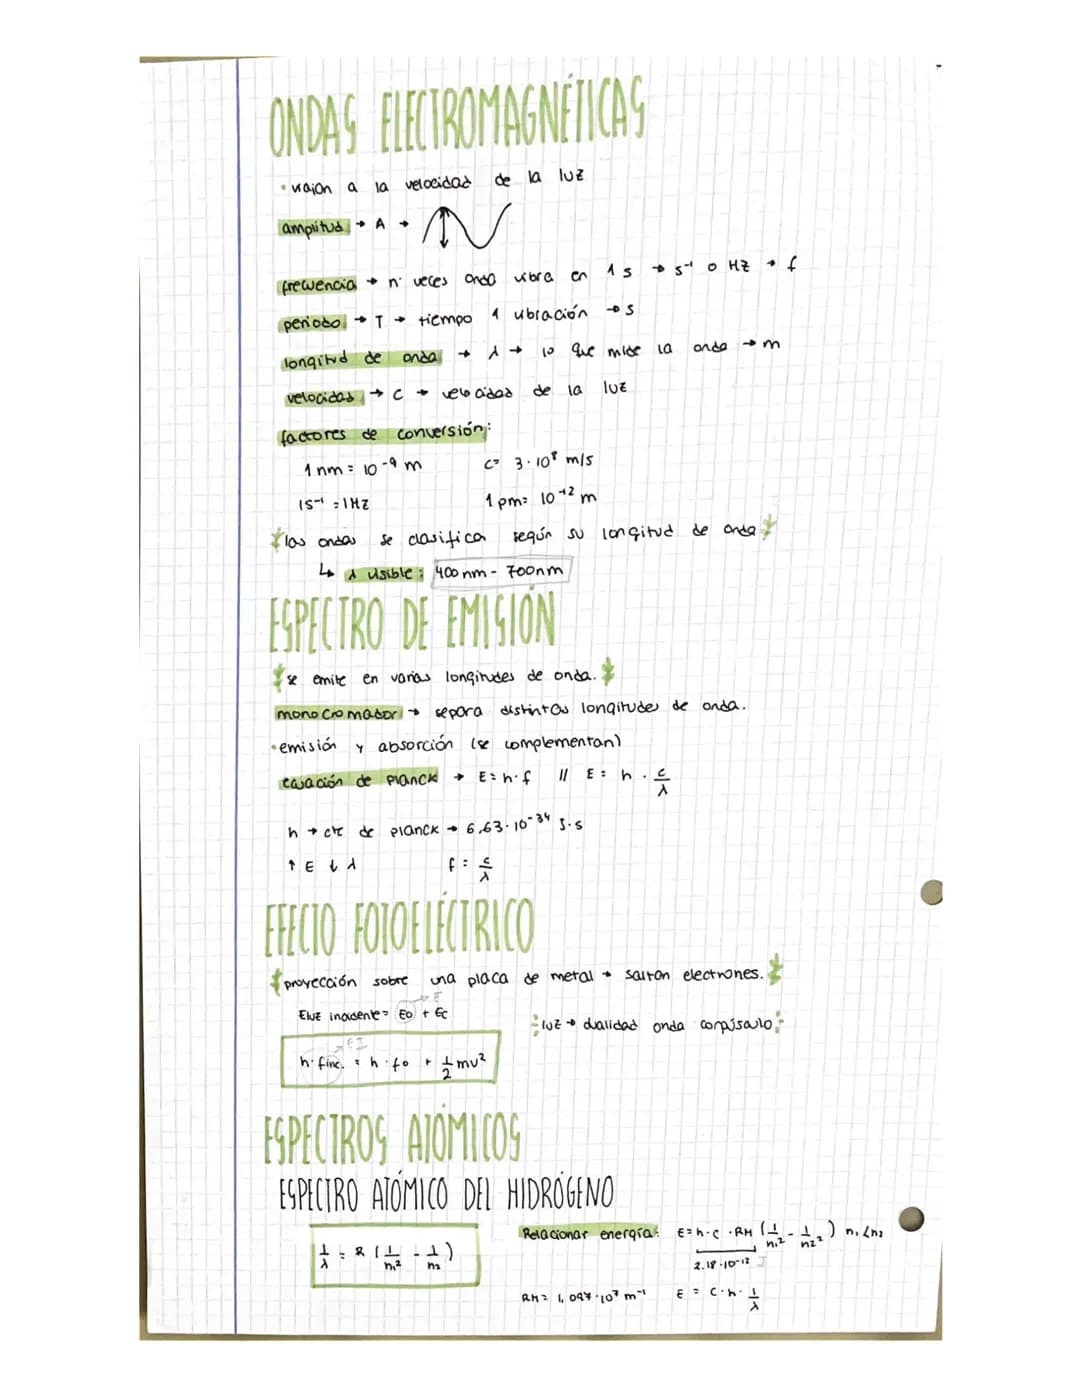 ONDAS ELECTROMAGNÉTICAS
• viajan a la velocidad de la luz
amplitud → A →
frecuencia → nº veces onda vibra en 1 s → s⁻¹ o HZ → f
periodo → T → tiempo 1 vibración → s
longitud de onda → λ → lo que mide la onda → m
velocidad → C → velocidad de la luz
factores de conversión:
1 nm = 10⁻⁹ m C = 3·10⁸ m/s
1S⁻¹ = 1HZ 1 pm = 10⁻¹² m
las ondas se clasifican según su longitud de onda
↳ λ visible: 400 nm - 700nm
ESPECTRO DE EMISIÓN
se emite en varias longitudes de onda.
monocromador → separa distintas longitudes de onda.
• emisión y absorción (se complementan)
ecuación de Planck → E = h·f // E = h · c/λ
h → cte de planck → 6,63·10⁻³⁴ J·s
↑ E ↓ λ f = c/λ
EFECTO FOTOELÉCTRICO
proyección sobre una placa de metal → saltan electrones.
→ E
Eluz incidente = Eo + Ec
luz → dualidad onda corpúsculo
h·finc. = h·fo + 1/2 mv²
ESPECTROS ATÓMICOS
ESPECTRO ATÓMICO DEL HIDRÓGENO
Relacionar energía: E = h·c·RH (1/n₁² - 1/n₂²) n₁<n₂
1/λ = R (1/n₁² - 1/n₂)
2.18·10⁻¹² J
RH = 1,097·10⁷ m⁻¹ E = C·h·1/λ